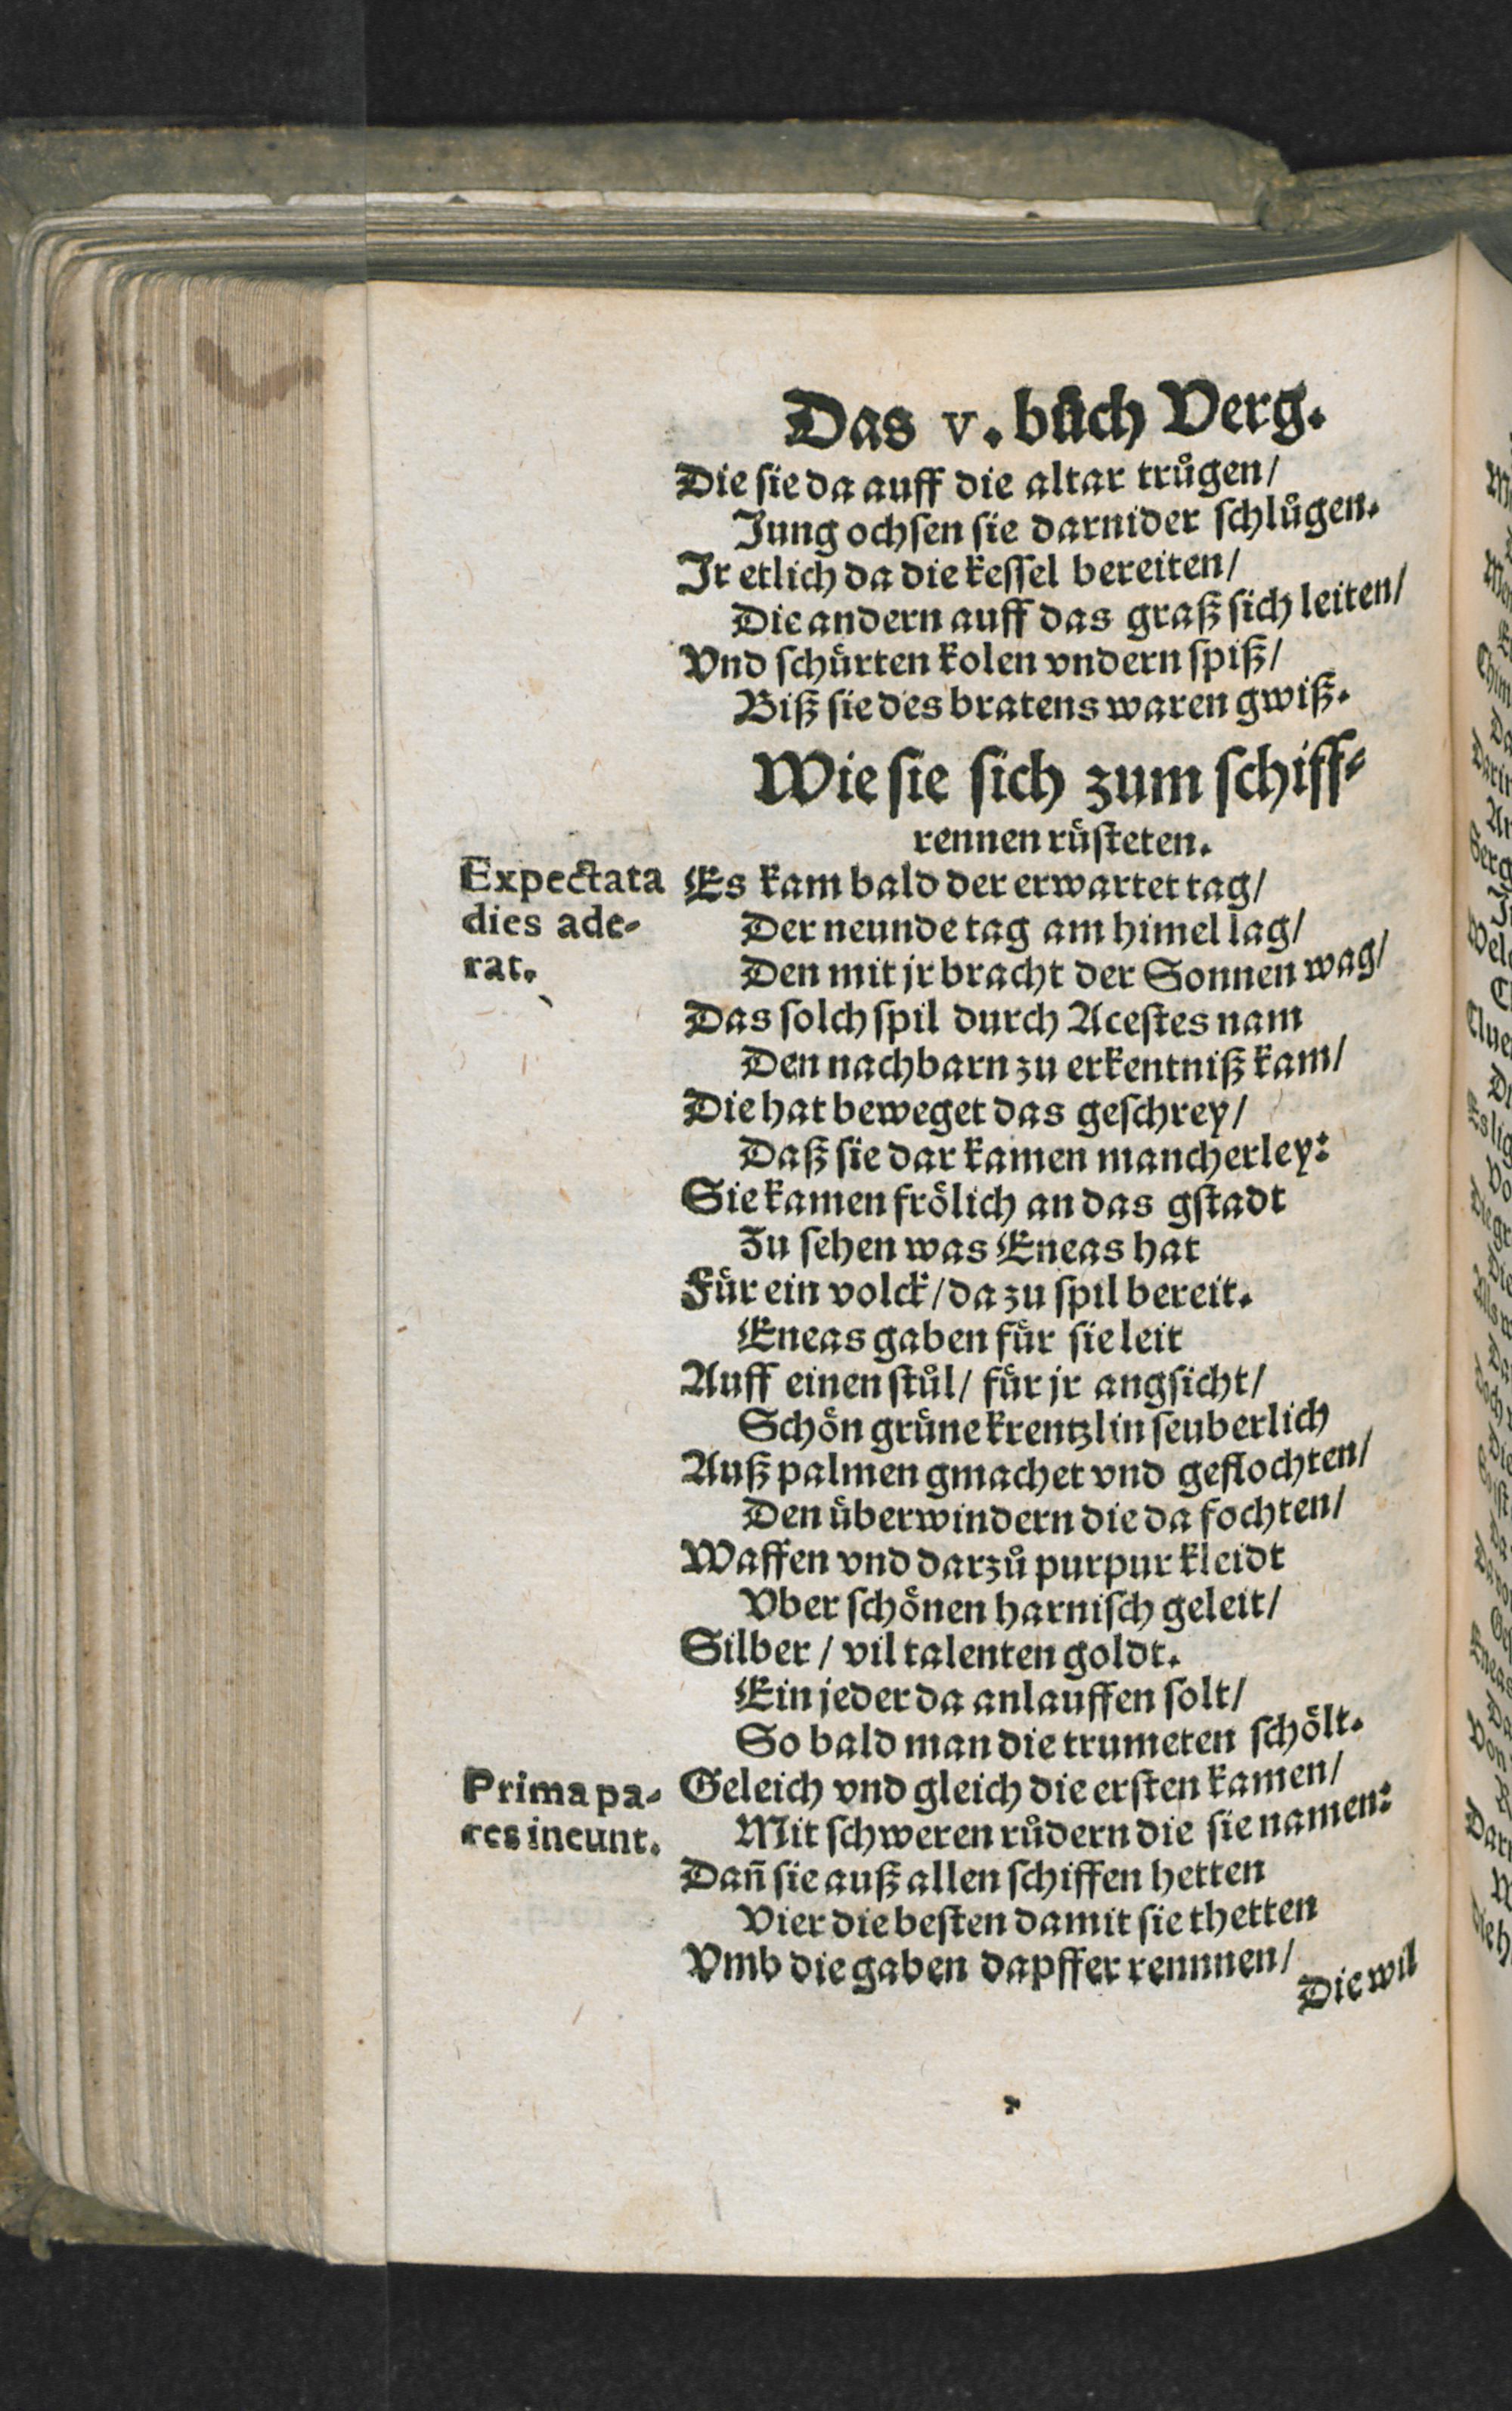 Das v. bůch Verg.
Die sie da auff die altar trůgen/
Jung ochsen sie darnider schlůgen.
Jr etlich da die kessel bereiten/
Die andern auff das graß sich leiten/
Vnd schürten kolen vndern spiß/
Biß sie des bratens waren gwiß.
Wie sie sich zum schiff-
rennen rüsteten.
Expectata
dies ade-
rat.
Es kam bald der erwartet tag/
Der neunde tag am himel lag/
Den mit jr bracht der Sonnen wag/
Das solch spil durch Acestes nam
Den nachbarn zu erkentniß kam/
Die hat beweget das geschrey/
Daß sie dar kamen mancherley:
Sie kamen frölich an das gstadt
Zu sehen was Eneas hat
Für ein volck/ da zu spil bereit.
Eneas gaben für sie leit
Auff einen stůl/ für jr angsicht/
Schön grüne krentzlin seuberlich
Auß palmen gmachet vnd geflochten/
Den überwindern die da fochten/
Waffen vnd darzů purpur kleidt
Vber schönen harnisch geleit/
Silber/ vil talenten goldt.
Ein jeder da anlauffen solt/
So bald man die trumeten schölt.
Prima pa-
res ineunt.
Geleich vnd gleich die ersten kamen/
Mit schweren růdern die sie namen:
Dañ sie auß allen schiffen hetten
Vier die besten damit sie thetten
Vmb die gaben dapffer rennnen/
Die wil